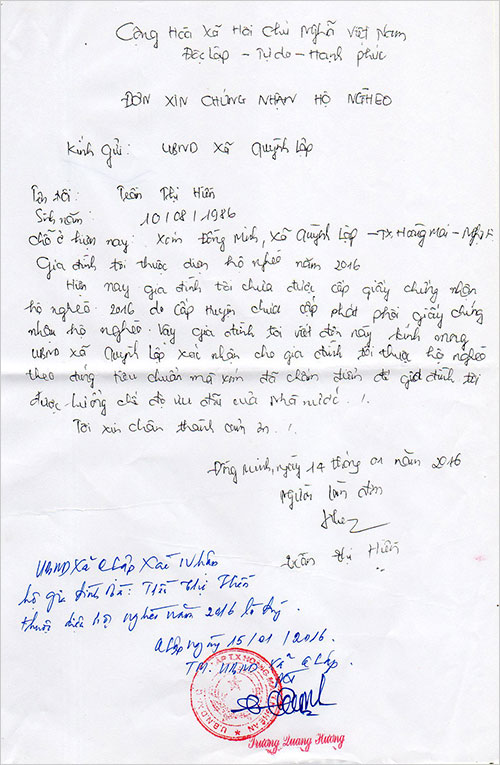 Cộng Hòa Xã Hội Chủ Nghĩa Việt Nam
Độc Lập - Tự do - Hạnh phúc
ĐƠN XIN CHỨNG NHẬN HỘ NGHÈO
Kính gửi: UBND xã Quỳnh Lập
Tên tôi: Trần Thị Hiền
Sinh năm: 10/08/1986
Chỗ ở hiện nay: Xóm Đồng Minh, Xã Quỳnh Lập - TX. Hoàng Mai -
Gia đình tôi thuộc diện hộ nghèo năm 2016
Hiện nay gia đình tôi chưa được cấp giấy chứng nhận
hộ nghèo 2016 do cấp huyện chưa cấp phát phôi giấy chứng
nhận hộ nghèo. Vậy gia đình tôi viết đơn này kính mong
UBND xã Quỳnh Lập xác nhận cho gia đình tôi thuộc hộ nghèo
theo đúng tiêu chuẩn mà xóm đã chấm điểm để gia đình tôi
được hưởng chế độ ưu đãi của nhà nước./.
Tôi xin chân thành cảm ơn./.
Đồng Minh, ngày 14 tháng 01 năm 2016
Người làm đơn
Trần Thị Hiền
UBND Xã Q Lập Xác Nhận
hộ gia đình Bà: Trần Thị Hiền
thuộc diện hộ nghèo năm 2016 là đúng.
Q Lập ngày 15/01/2016.
TM. UBND xã Q Lập
Trương Quang Hường